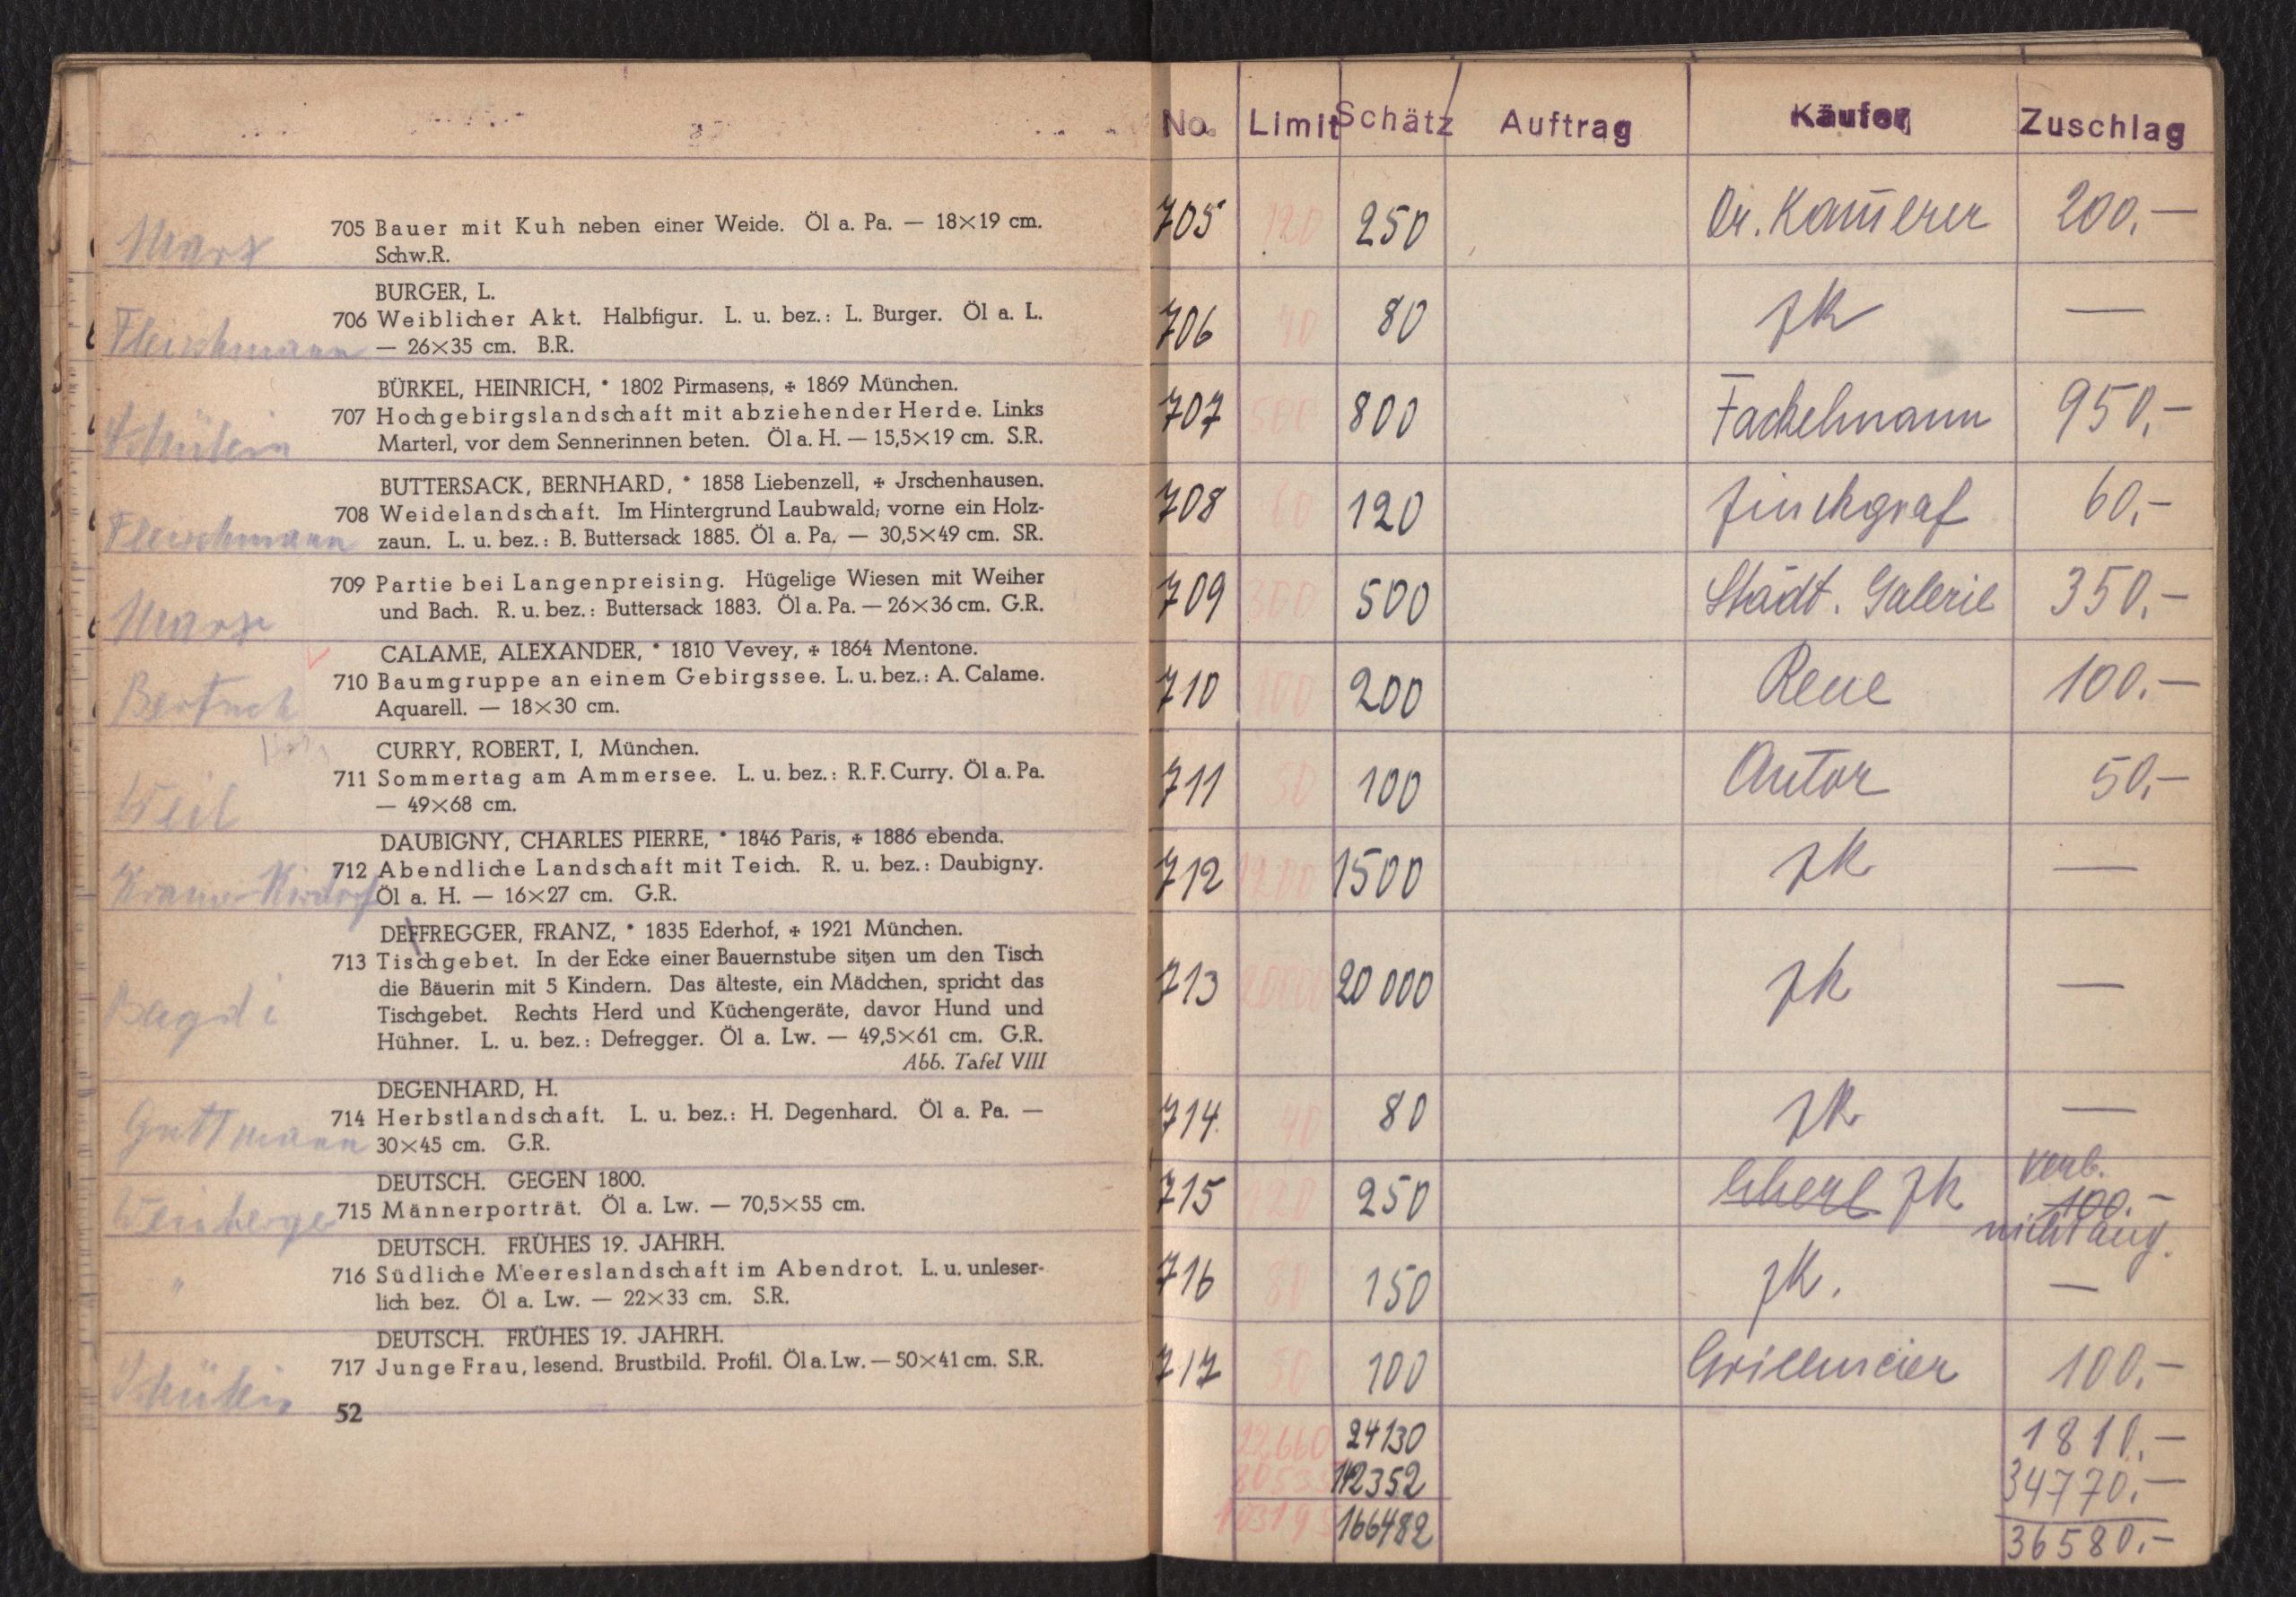 Marx
705 Bauer mit Kuh neben einer Weide. Öl a. Pa. — 18×19 cm.
Schw.R.
BURGER, L.
706 Weiblicher Akt. Halbfigur. L. u. bez.: L. Burger. Öl a. L.
Fleischmann — 26×35 cm. B.R.
BÜRKEL, HEINRICH, * 1802 Pirmasens, + 1869 München.
707 Hochgebirgslandschaft mit abziehender Herde. Links
Schülein Marterl, vor dem Sennerinnen beten. Öl a. H. — 15,5×19 cm. S.R.
BUTTERSACK, BERNHARD, * 1858 Liebenzell, + Jrschenhausen.
708 Weidelandschaft. Im Hintergrund Laubwald; vorne ein Holz-
Fleischmann zaun. L. u. bez.: B. Buttersack 1885. Öl a. Pa. — 30,5×49 cm. SR.
709 Partie bei Langenpreising. Hügelige Wiesen mit Weiher
Marx und Bach. R. u. bez.: Buttersack 1883. Öl a. Pa. — 26×36 cm. G.R.
CALAME, ALEXANDER, * 1810 Vevey, + 1864 Mentone.
710 Baumgruppe an einem Gebirgssee. L. u. bez.: A. Calame.
Aquarell. — 18×30 cm.
CURRY, ROBERT, I, München.
711 Sommertag am Ammersee. L. u. bez.: R. F. Curry. Öl a. Pa.
Weil — 49×68 cm.
DAUBIGNY, CHARLES PIERRE, * 1846 Paris, + 1886 ebenda.
712 Abendliche Landschaft mit Teich. R. u. bez.: Daubigny.
Öl a. H. — 16×27 cm. G.R.
DEFFREGGER, FRANZ, * 1835 Ederhof, + 1921 München.
713 Tischgebet. In der Ecke einer Bauernstube sitzen um den Tisch
die Bäuerin mit 5 Kindern. Das älteste, ein Mädchen, spricht das
Tischgebet. Rechts Herd und Küchengeräte, davor Hund und
Hühner. L. u. bez.: Defregger. Öl a. Lw. — 49,5×61 cm. G.R.
Abb. Tafel VIII
DEGENHARD, H.
714 Herbstlandschaft. L. u. bez.: H. Degenhard. Öl a. Pa. —
Guttmann 30×45 cm. G.R.
DEUTSCH. GEGEN 1800.
Weinberger 715 Männerporträt. Öl a. Lw. — 70,5×55 cm.
DEUTSCH. FRÜHES 19. JAHRH.
" 716 Südliche Meereslandschaft im Abendrot. L. u. unleser-
lich bez. Öl a. Lw. — 22×33 cm. S.R.
DEUTSCH. FRÜHES 19. JAHRH.
717 Junge Frau, lesend. Brustbild. Profil. Öl a. Lw. — 50×41 cm. S.R.
Schülein
52
No. Limit Schätz Auftrag Käufer Zuschlag
705 120 250 Dr. Kam̄erer 200.—
706 40 80 zk —
707 500 800 Fackelmann 950,-
708 60 120 Zinckgraf 60,-
709 300 500 Städt. Galerie 350.-
710 100 200 100.—
711 50 100 Autor 50,-
712 1200 1500 zk —
713 20000 20 000 zk —
714 40 80 zk —
715 120 250 Eherl zk verb. 100.-
nicht ang.
716 80 150 zk. —
717 50 100 Grillmeier 100.-
22660 24130 1810.—
34770.—
166482 36580.-